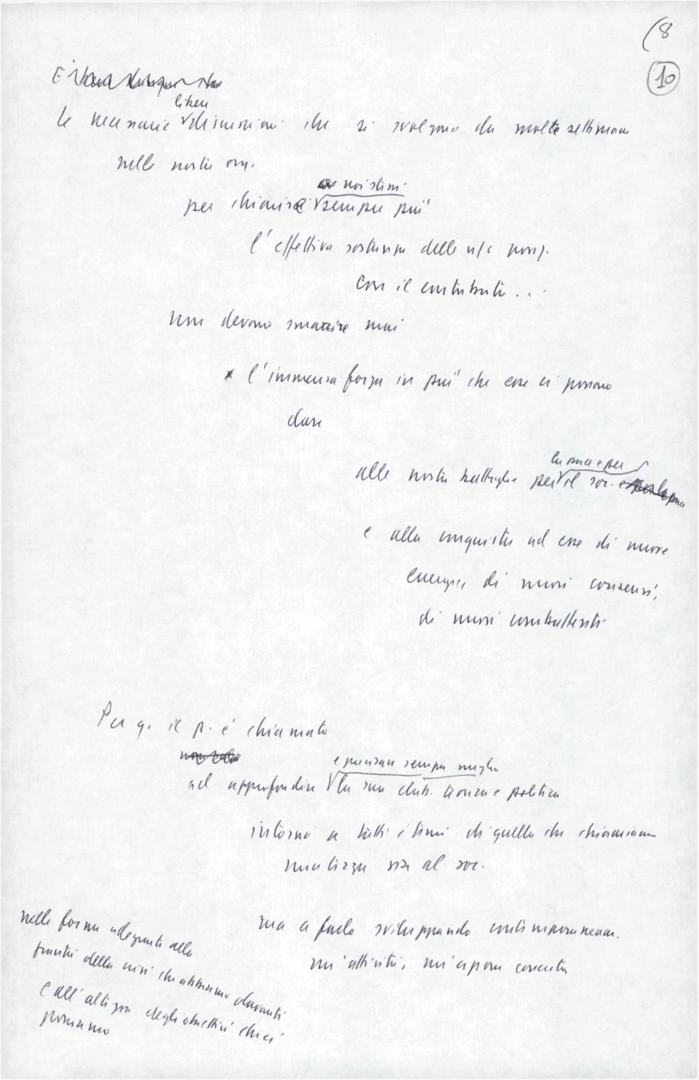 (8
10
E'
liberi
Le necessarie discussioni che si svolgono da molte settimane
nelle nostre org.
a noi stessi
per chiarire sempre più
l'effettiva sostanza delle n/s posiz.
con il contributo...
non devono smarrire mai
l'immensa forza in più che esse ci possono
dare
la pace e per
alle nostre battaglie per il soc.
e alla conquista ad esse di nuove
energie, di nuovi consensi,
di nuovi combattenti
Per q. il p. è chiamato
e precisare sempre meglio
ad approfondire la sua elab. teorica e politica
intorno a tutti i temi di quella che chiamiamo
via al soc.
ma a farlo sviluppando contemporaneam.
un'attività, un'azione concreta
nelle forme adeguate alla
gravità della crisi che abbiamo davanti
e all'altezza degli obiettivi che ci
poniamo